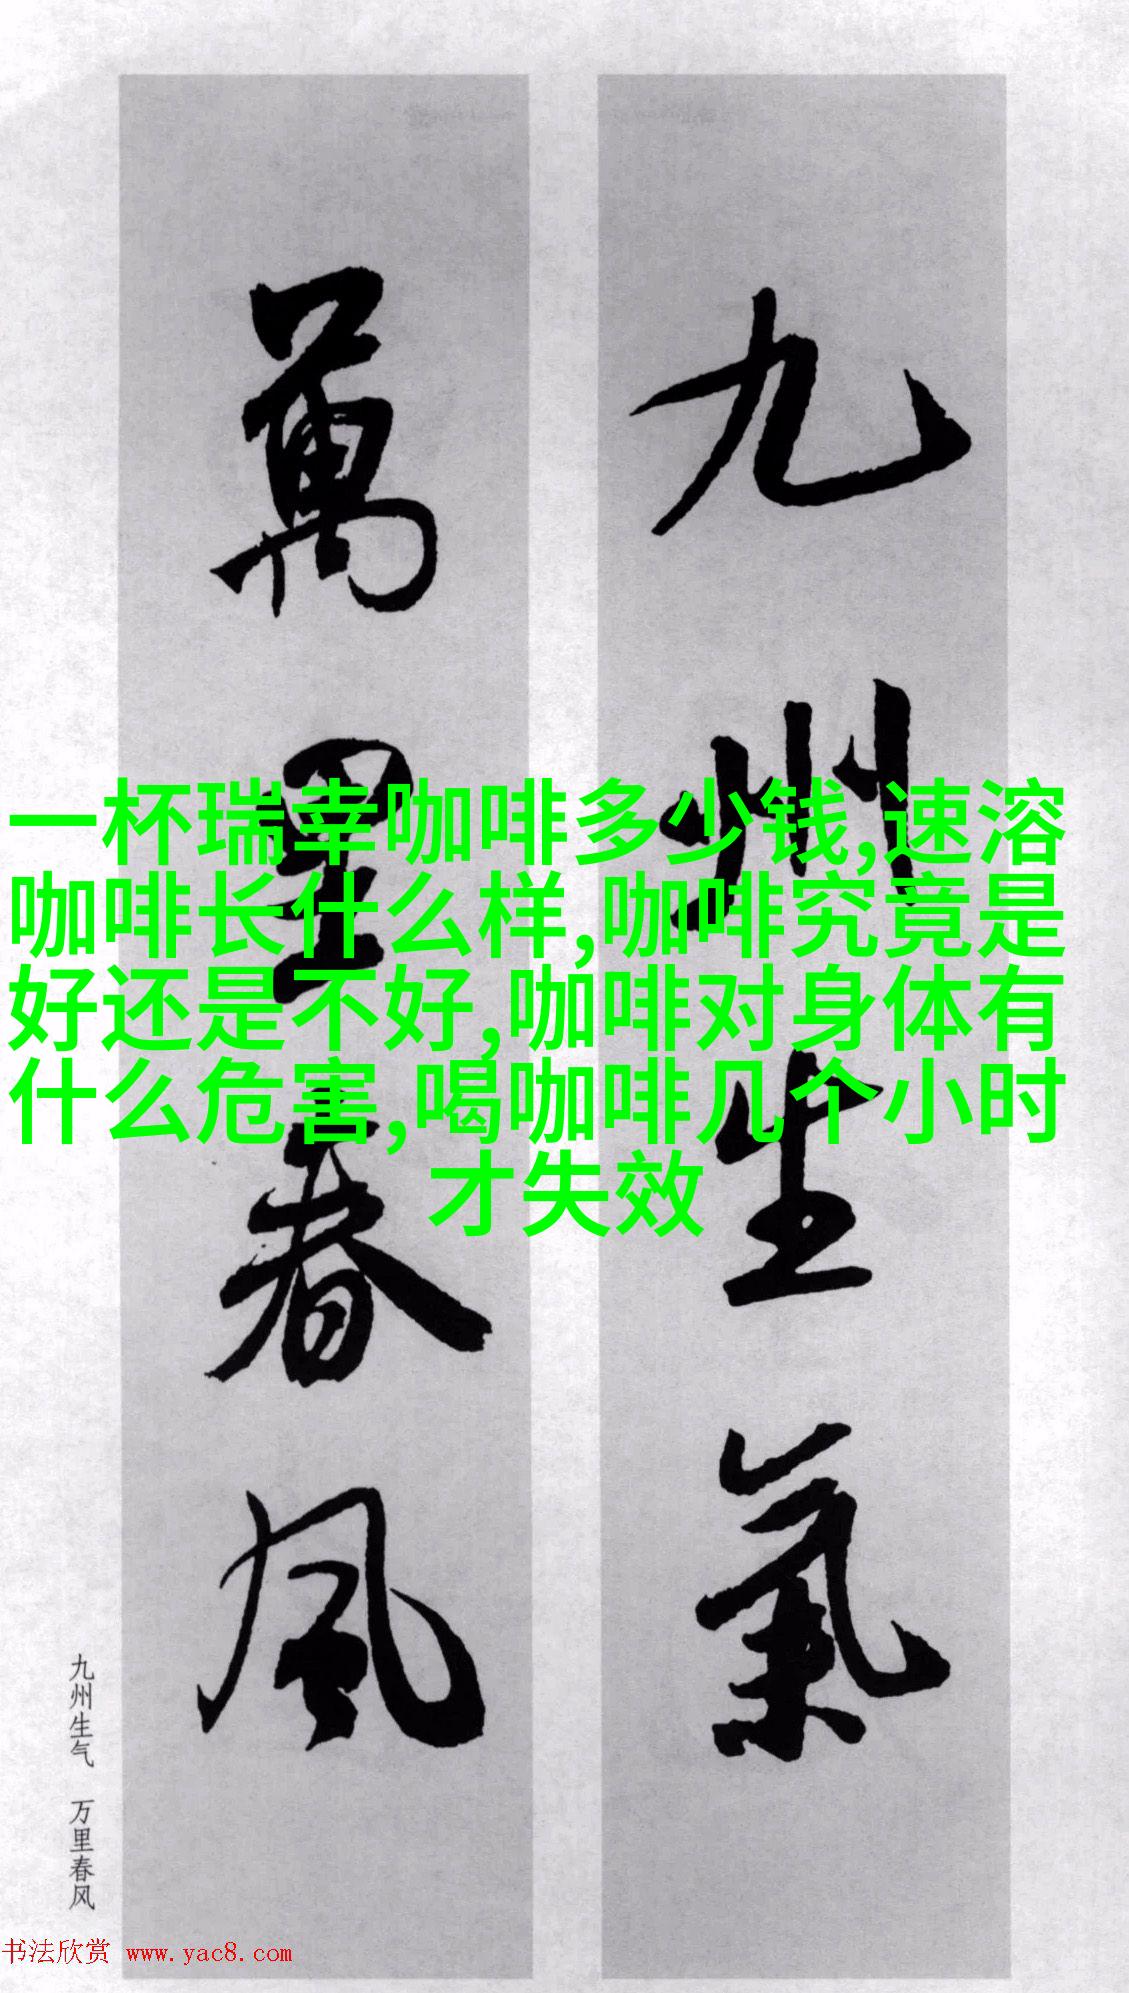 九州生氣
萬里春風
一杯瑞幸咖啡多少钱,速溶
咖啡长什么样,咖啡究竟是
好还是不好,咖啡对身体有
什么危害,喝咖啡几个小时
才失效
九州生气 万里春风
书法欣赏 www.yac8.com